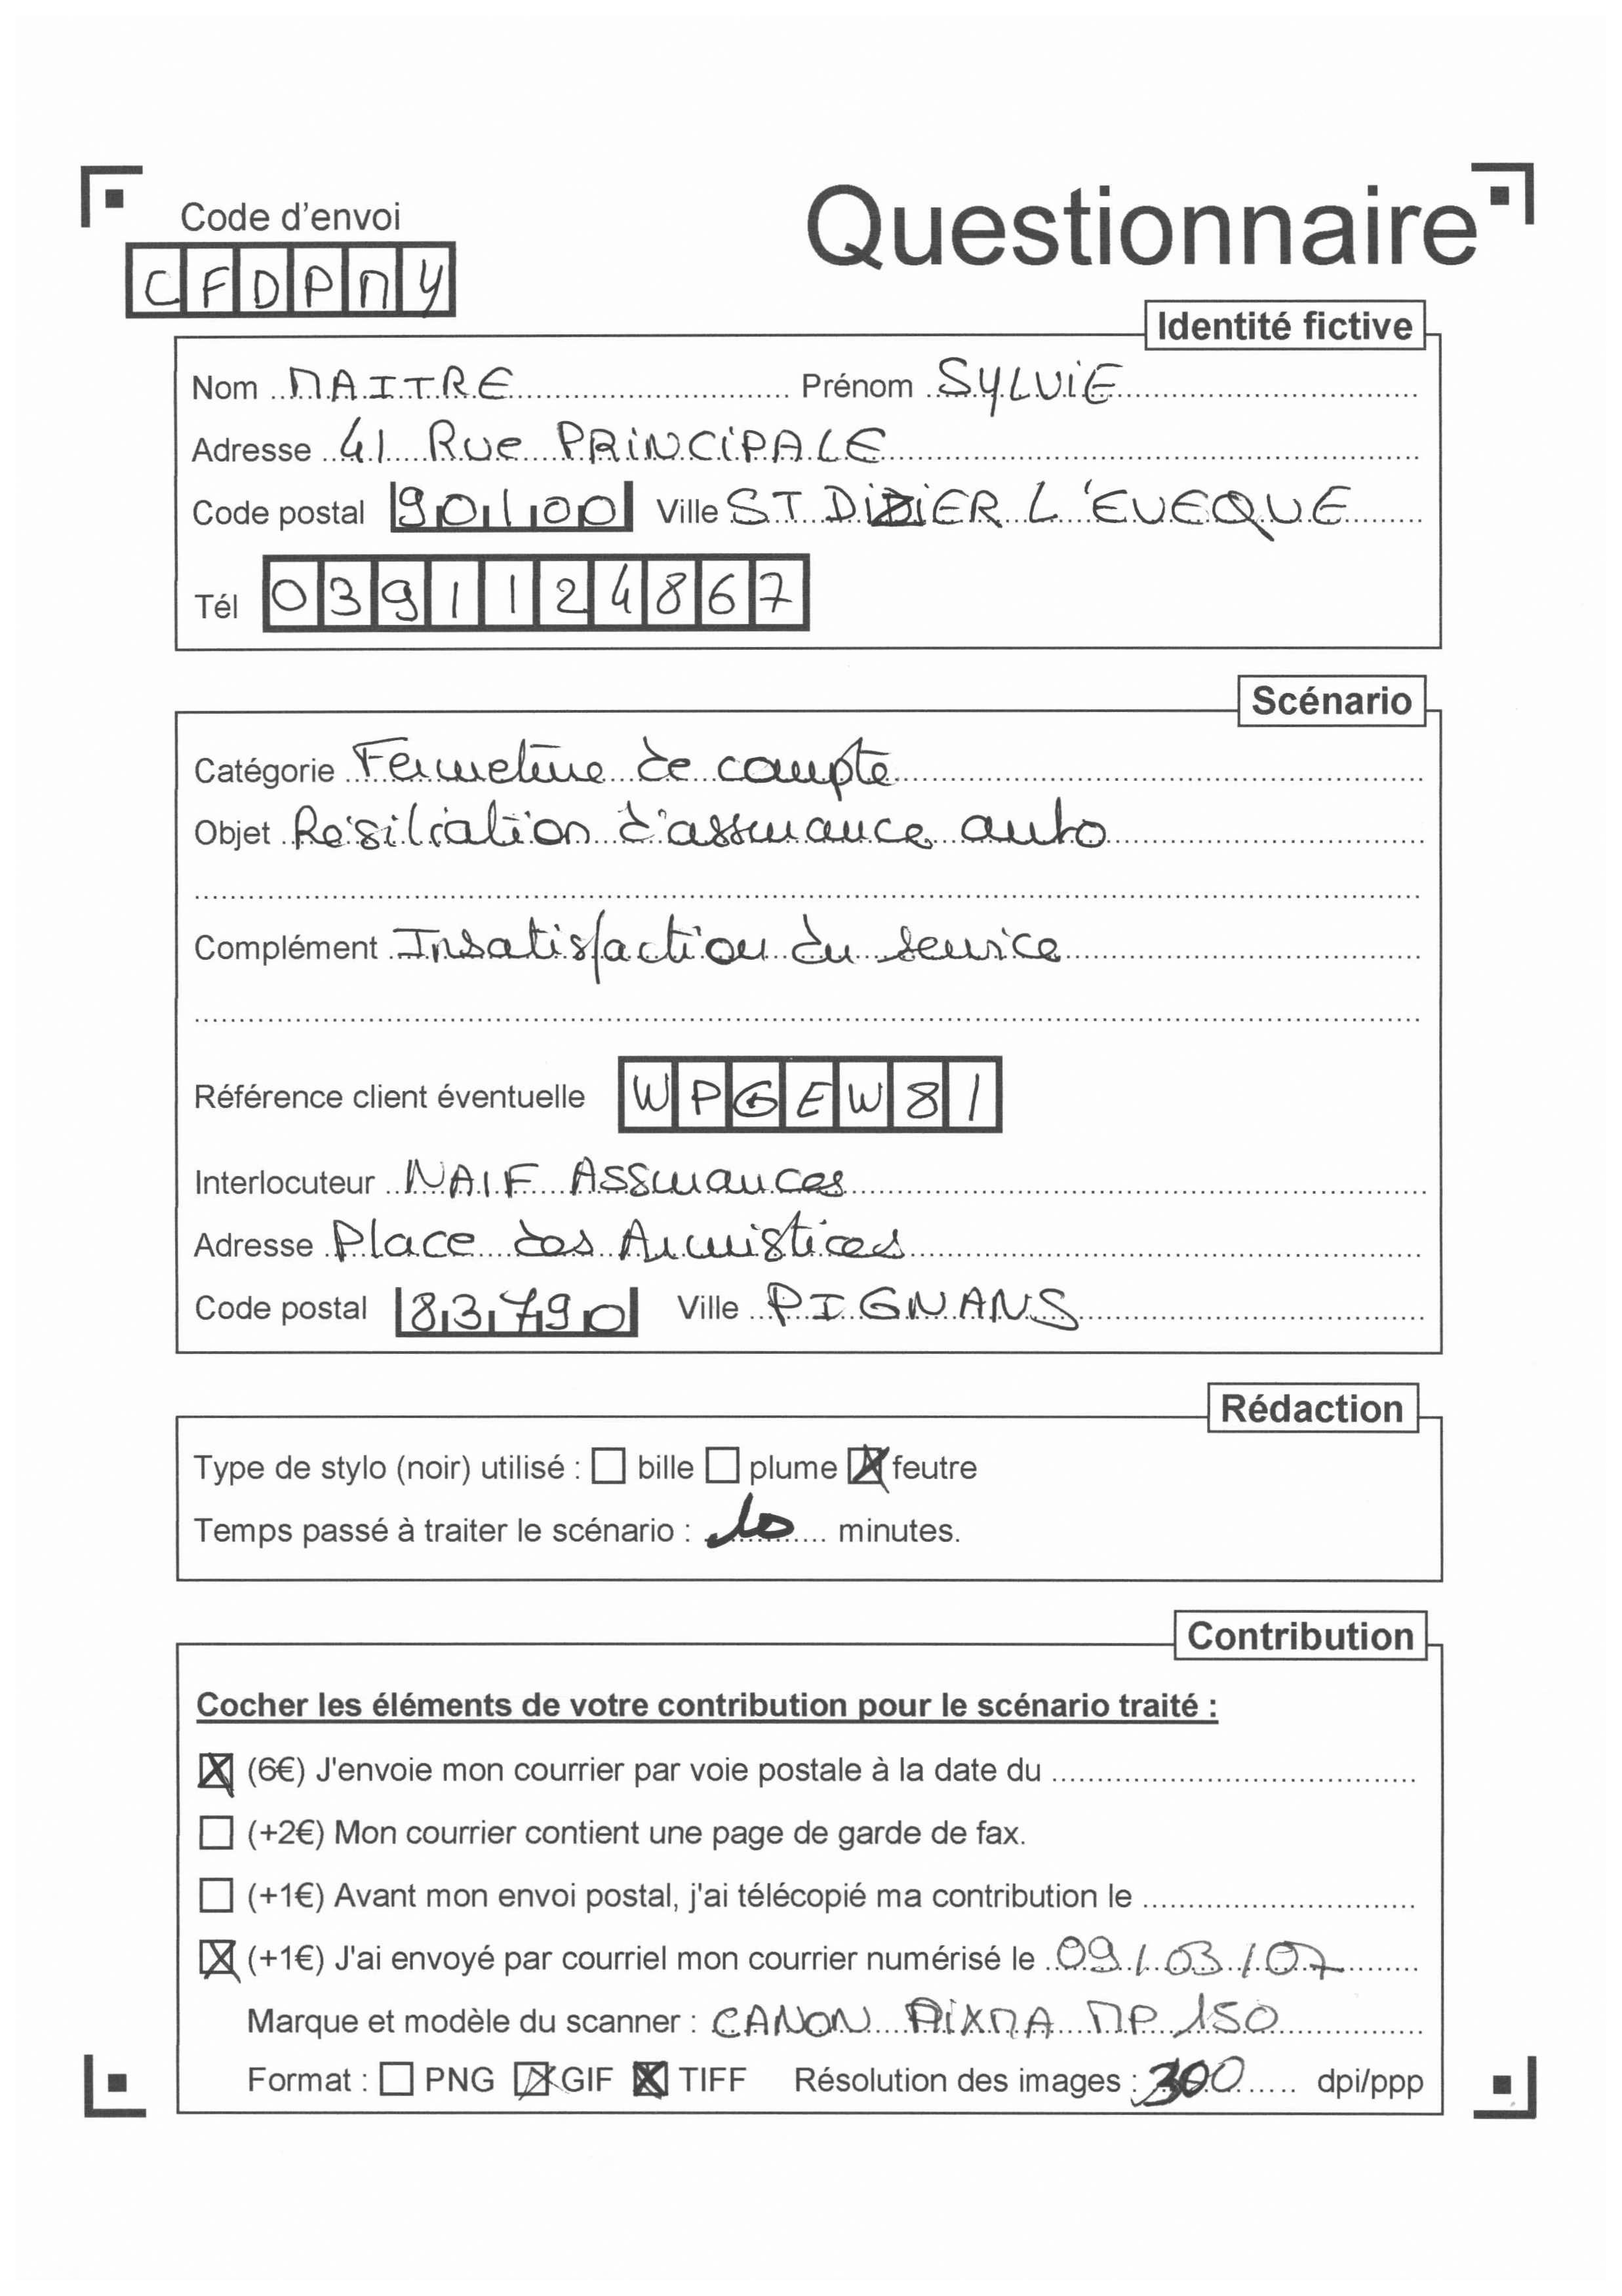 Code d'envoi
Questionnaire
CFDPMY
Identité fictive
Nom MAITRE Prénom SYLVIE
Adresse 41 Rue PRINCIPALE
Code postal 90100 Ville ST DIDIER L'EVEQUE
Tél 0391124867
Scénario
Catégorie Fermeture de compte
Objet Résiliation d'assurance auto
Complément Insatisfaction du service
Référence client éventuelle WPGEW81
Interlocuteur NAIF Assurances
Adresse Place des Armistices
Code postal 83790 Ville PIGNANS
Rédaction
Type de stylo (noir) utilisé : ☐ bille ☐ plume ☒ feutre
Temps passé à traiter le scénario : 10 minutes.
Contribution
Cocher les éléments de votre contribution pour le scénario traité :
☒ (6€) J'envoie mon courrier par voie postale à la date du
☐ (+2€) Mon courrier contient une page de garde de fax.
☐ (+1€) Avant mon envoi postal, j'ai télécopié ma contribution le
☒ (+1€) J'ai envoyé par courriel mon courrier numérisé le 09/03/07
Marque et modèle du scanner : CANON PIXMA MP 150
Format : ☐ PNG ☒ GIF ☒ TIFF Résolution des images : 300 dpi/ppp